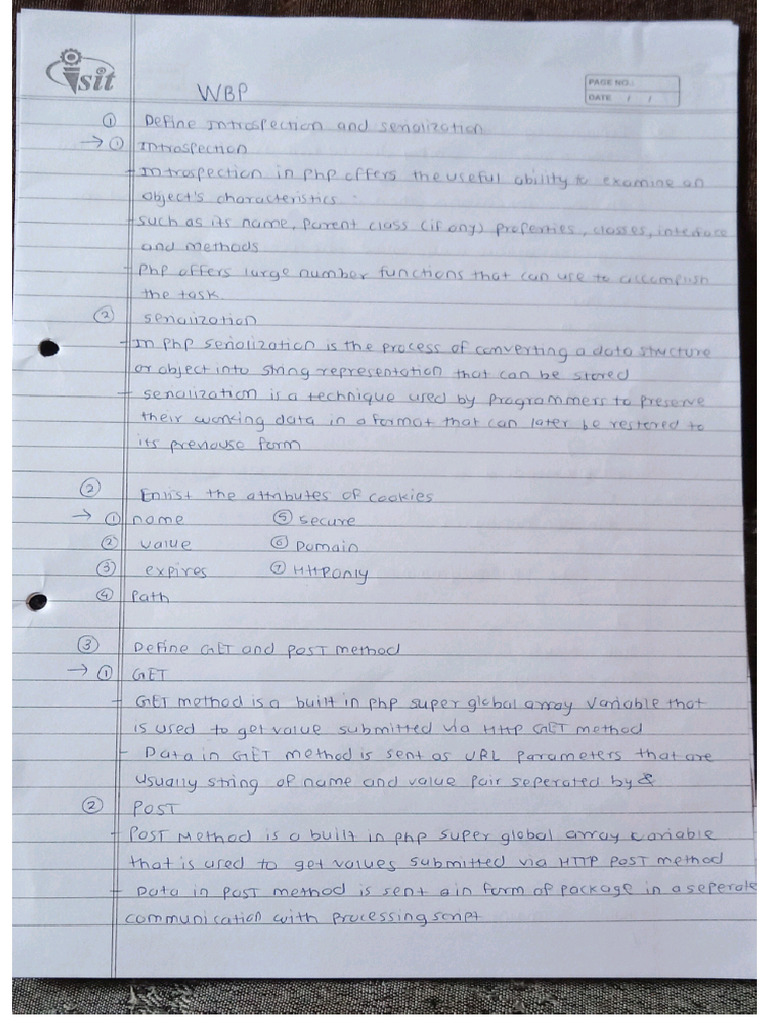 isit
WBP
PAGE NO.:
DATE / /
① Define Introspection and serialization
→ ① Introspection
- Introspection in php offers the useful ability to examine an
object's characteristics.
- such as its name, parent class (if any) properties, classes, interface
and methods
- Php offers large number functions that can use to accomplish
the task.
② serialization
- In php serialization is the process of converting a data structure
or object into string representation that can be stored
- serialization is a technique used by programmers to preserve
their working data in a format that can later be restored to
its previouse form
② Enlist the attributes of cookies
→ ① name ⑤ secure
② value ⑥ Domain
③ expires ⑦ HttpOnly
④ Path
③ Define GET and POST method
→ ① GET
- GET method is a built in php super global array variable that
is used to get value submitted via HTTP GET method
- Data in GET method is sent as URL parameters that are
usually string of name and value pair seperated by &
② POST
- POST Method is a built in php super global array variable
that is used to get values submitted via HTTP POST method
- Data in POST method is sent a in form of package in a seperate
communication with processing script